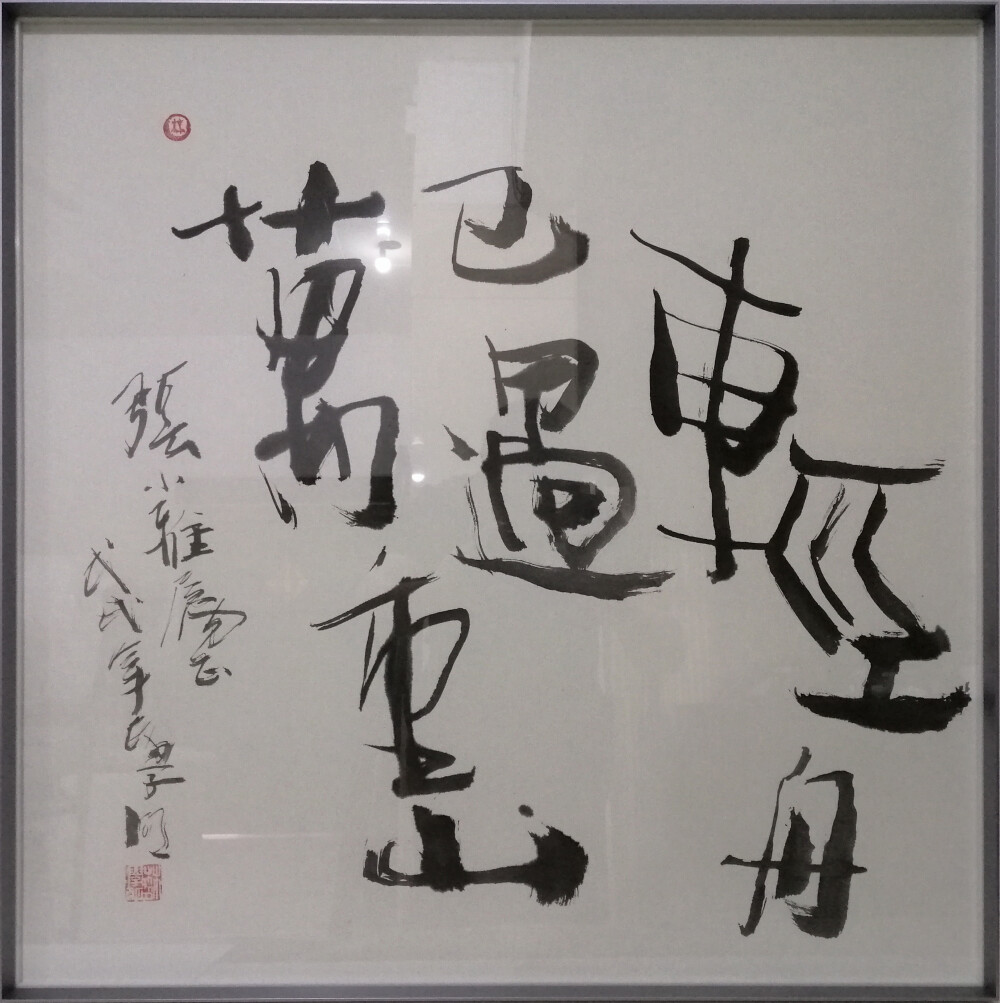 輕舟
已過
萬重山
張小雅屬正
戊戌年